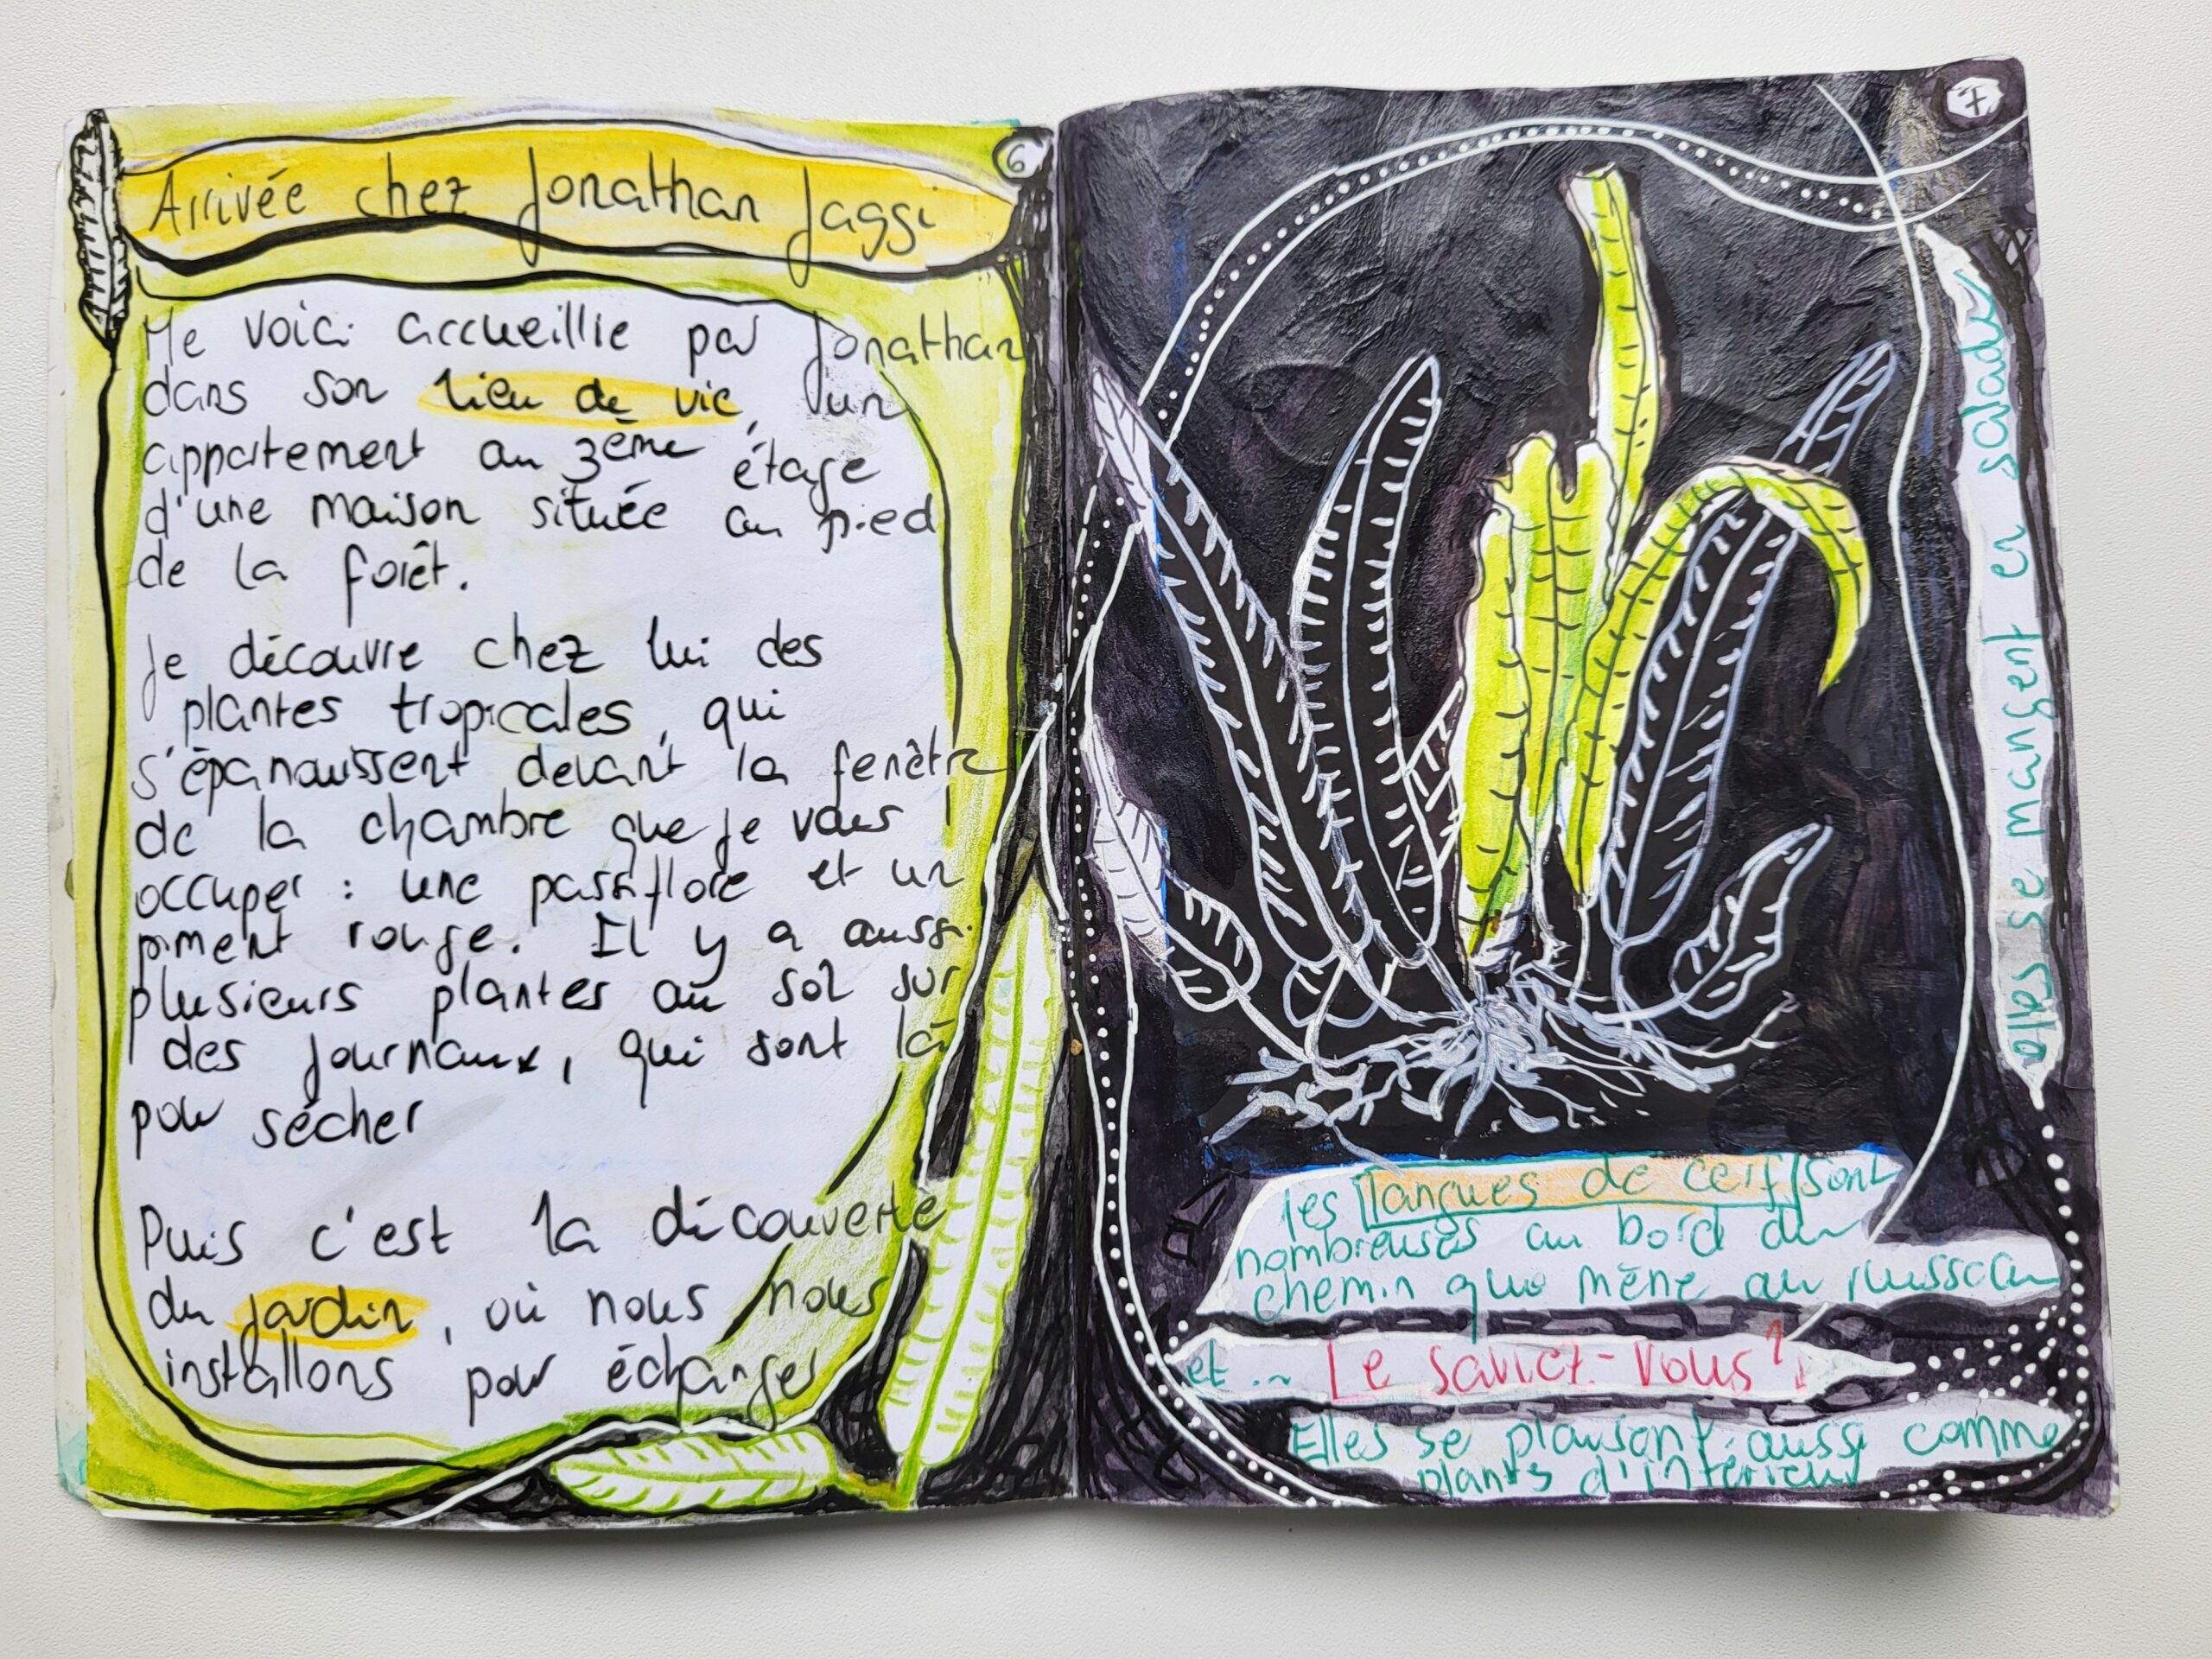 6
Arrivée chez Jonathan Jaggi
Me voici accueillie par Jonathan
dans son lieu de vie, un
appartement au 3ème étage
d'une maison située au pied
de la forêt.
Je découvre chez lui des
plantes tropicales, qui
s'épanouissent devant la fenêtre
de la chambre que je vais
occuper : une passiflore et un
piment rouge. Il y a aussi
plusieurs plantes au sol sur
des journaux, qui sont là
pour sécher
Puis c'est la découverte
du jardin, où nous nous
installons pour échanger
7
elles se mangent en salade
les langues de cerf sont
nombreuses au bord du
chemin qui mène au ruisseau
et... Le saviez-vous ?
Elles se plaisent aussi comme
plants d'intérieur